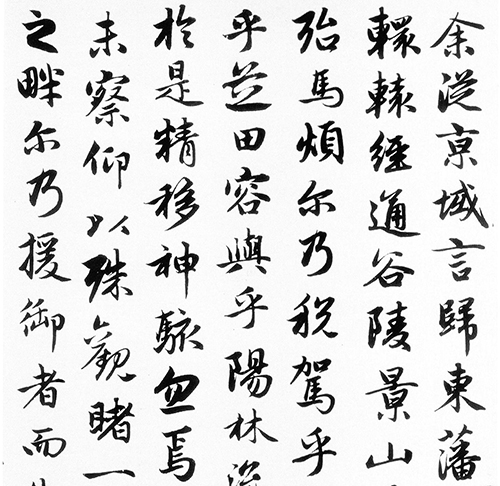 余從京域言歸東藩
轘轅經通谷陵景山
殆馬煩尔乃税駕乎
乎芝田容與乎陽林
於是精移神駭忽焉
未察仰以殊觀睹一
之畔尔乃援御者而